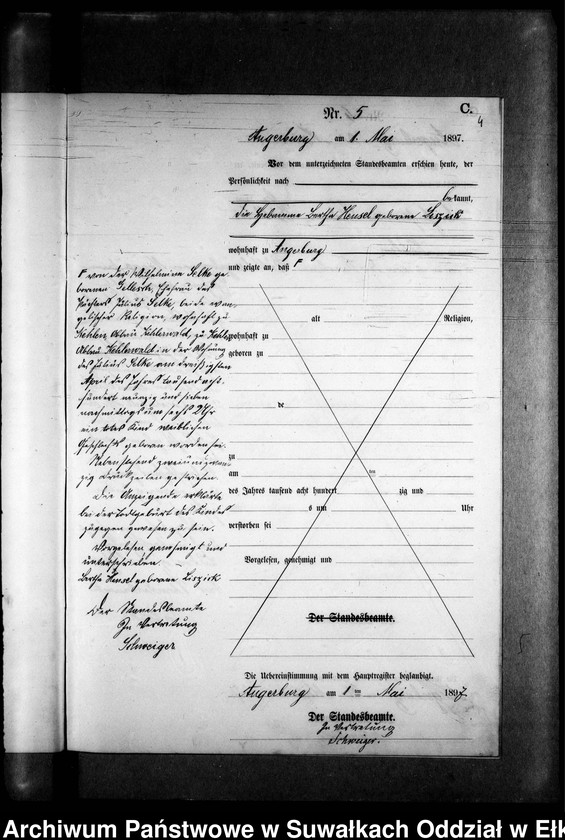 C.
4
Nr. 5
Angerburg am 1. Mai 1897.
Vor dem unterzeichneten Standesbeamten erschien heute, der
Persönlichkeit nach
bekannt,
die Hebamme Bertha Hensel geborene Liszick
wohnhaft zu Angerburg
und zeigte an, daß
von der Wilhelmine Selke ge
borenen Gellesch, Ehefrau des
Pächters Julius Selke, beide evan
gelischer Religion, wohnhaft zu
Kehlen, Abbau Kehlenwald, zu Kehlen
Abbau Kehlenwald in der Wohnung
des Julius Selke am dreißigsten
April des Jahres tausend acht
hundert neunzig und sieben
nachmittags um sechs Uhr
ein todtes Kind weiblichen
Geschlechts geboren worden sei.
Nebenstehend zweiundzwan
zig Druckzeilen gestrichen.
Die Anzeigende erklärte
bei der Todtgeburt des Kindes
zugegen gewesen zu sein.
Vorgelesen genehmigt und
unterschrieben.
Bertha Hensel geborene Liszick
Der Standesbeamte
In Vertretung
Schweiger
alt Religion,
wohnhaft zu
geboren zu
de
zu
am ten
des Jahres tausend acht hundert zig und
s um Uhr
verstorben sei
Vorgelesen, genehmigt und
Der Standesbeamte.
Die Uebereinstimmung mit dem Hauptregister beglaubigt.
Angerburg am 1 ten Mai 1897
Der Standesbeamte.
In Vertretung
Schweiger.
Archiwum Państwowe w Suwałkach Oddział w Ełk